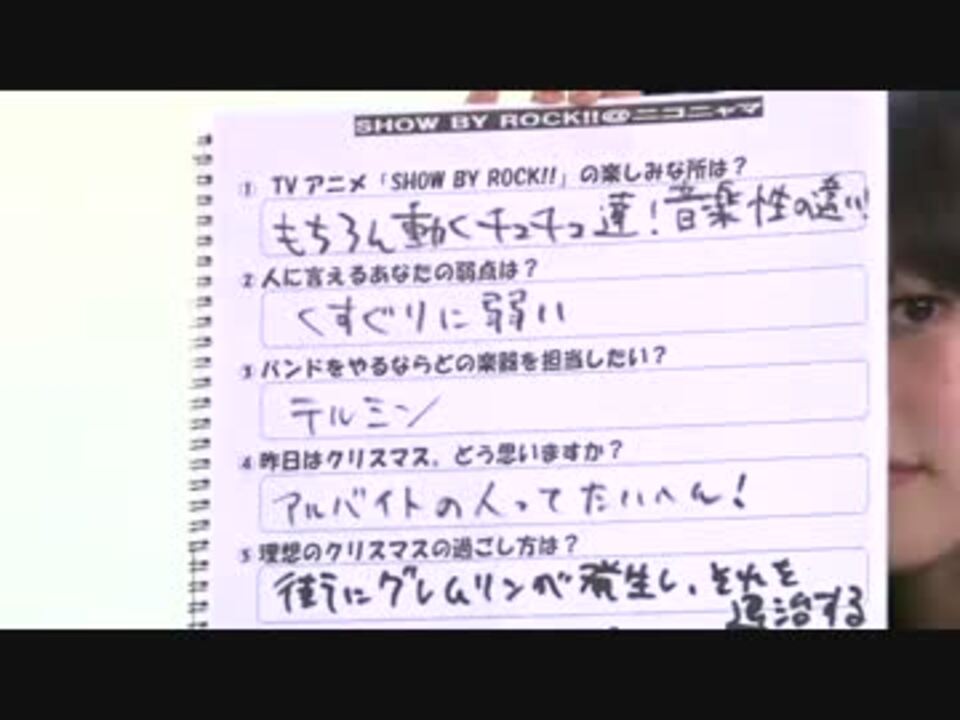 SHOW BY ROCK!!@ニコニャマ
① TVアニメ「SHOW BY ROCK!!」の楽しみな所は？
もちろん動くチュチュ達！音楽性の違い!
② 人に言えるあなたの弱点は？
くすぐりに弱い
③ バンドをやるならどの楽器を担当したい？
テルミン
④ 昨日はクリスマス。どう思いますか？
アルバイトの人ってたいへん！
⑤ 理想のクリスマスの過ごし方は？
街にグレムリンが発生し、それを
退治する